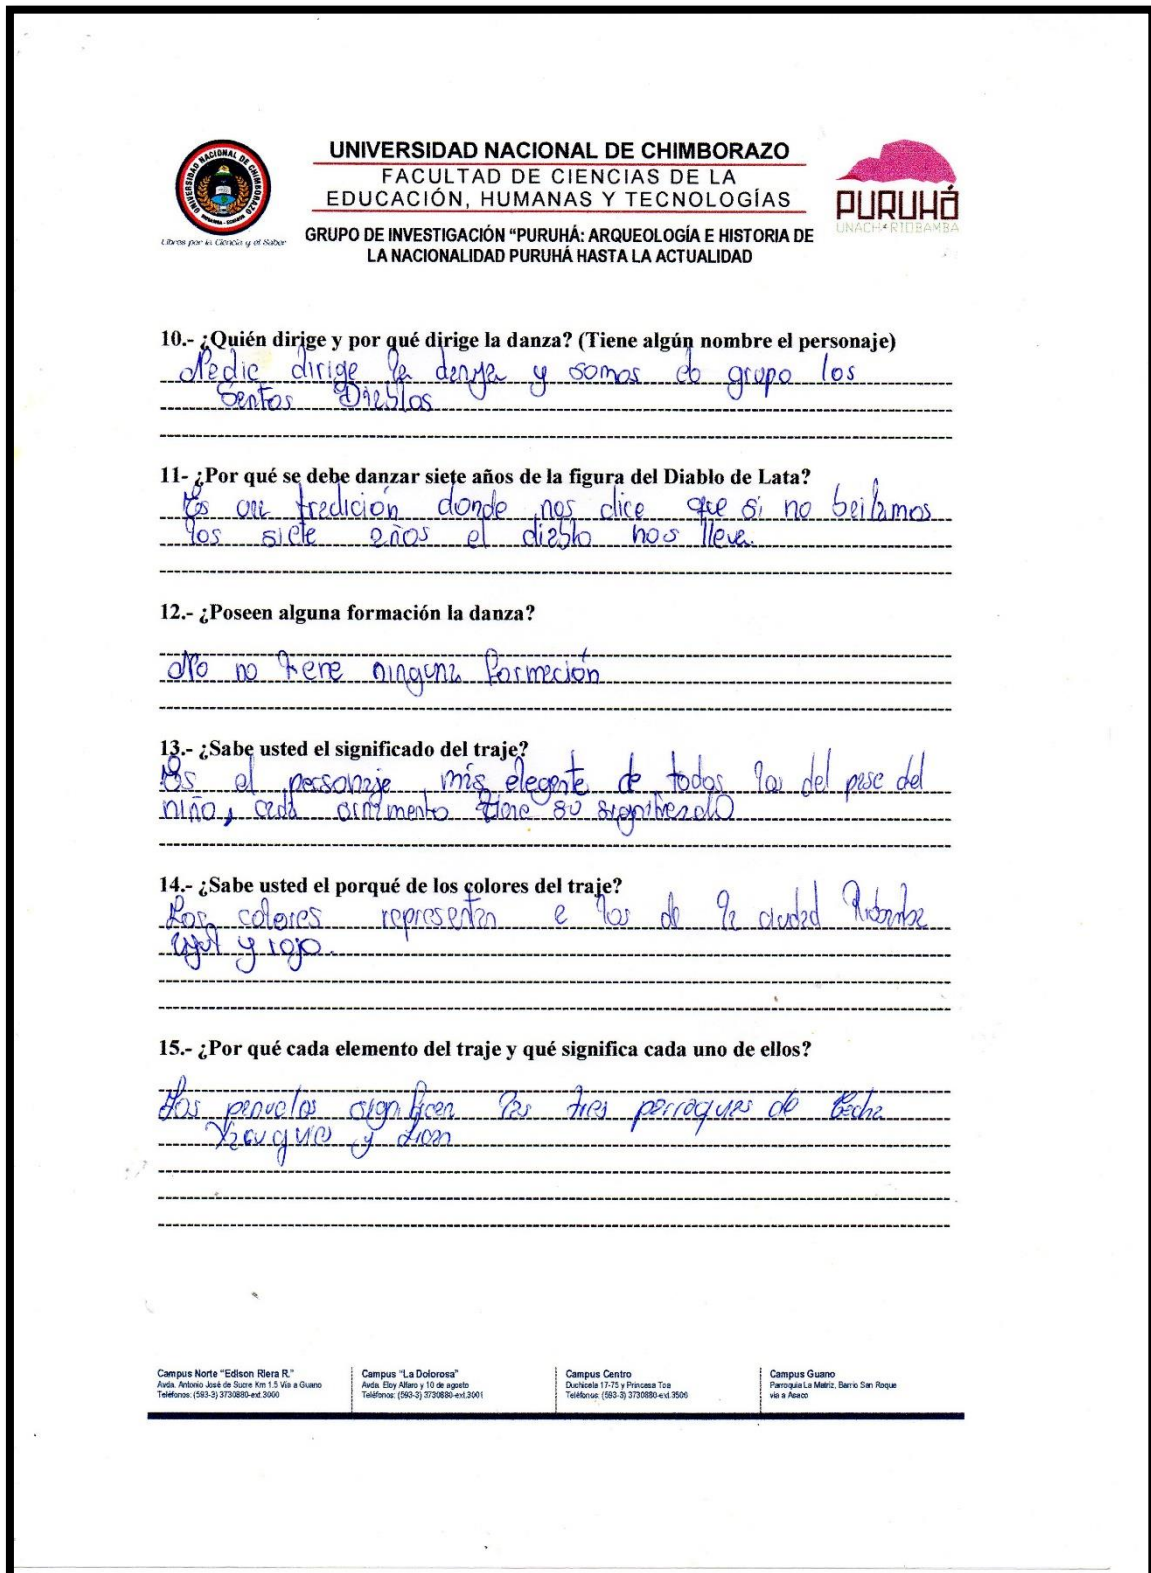 UNIVERSIDAD NACIONAL DE CHIMBORAZO
FACULTAD DE CIENCIAS DE LA
EDUCACIÓN, HUMANAS Y TECNOLOGÍAS
GRUPO DE INVESTIGACIÓN “PURUHÁ: ARQUEOLOGÍA E HISTORIA DE
LA NACIONALIDAD PURUHÁ HASTA LA ACTUALIDAD
UNIVERSIDAD NACIONAL DE CHIMBORAZO
Libres por la Ciencia y el Saber
PURUHÁ
UNACH-RIOBAMBA
10.- ¿Quién dirige y por qué dirige la danza? (Tiene algún nombre el personaje)
Nadie dirige la danza y somos grupo los
Santos Diablos
11- ¿Por qué se debe danzar siete años de la figura del Diablo de Lata?
Es tradición donde nos dice que si no bailamos
los siete años el diablo nos lleva.
12.- ¿Poseen alguna formación la danza?
No no tiene ninguna formación
13.- ¿Sabe usted el significado del traje?
Es el personaje más elegante de todos los del pase del
niño, cada ornamento tiene su significado
14.- ¿Sabe usted el porqué de los colores del traje?
Los colores representan a los de la ciudad Riobamba
azul y rojo.
15.- ¿Por qué cada elemento del traje y qué significa cada uno de ellos?
Los pañuelos significan las tres parroquias de
y
Campus Norte "Edison Riera R."
Avda. Antonio José de Sucre Km 1.5 Vía a Guano
Teléfonos: (593-3) 3730880-ext.3000
Campus "La Dolorosa"
Avda. Eloy Alfaro y 10 de agosto
Teléfonos: (593-3) 3730880-ext.3001
Campus Centro
Duchicela 17-75 y Princesa Toa
Teléfonos: (593-3) 3730880-ext.3506
Campus Guano
Parroquia La Matriz, Barrio San Roque
vía a Asaco